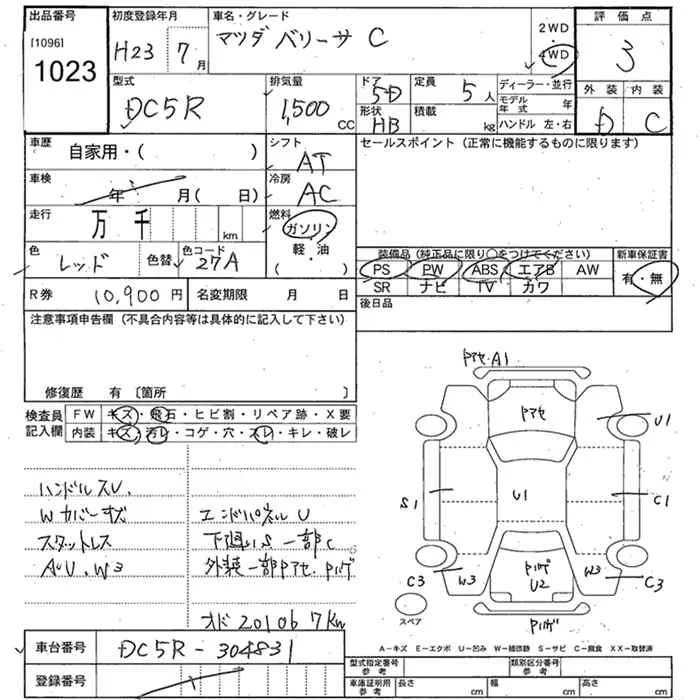 出品番号
[1096]
1023
初度登録年月
H23年7月
車名・グレード
マツダ ベリーサ C
2WD
4WD
評価点
3
型式
DC5R
排気量
1,500 CC
ドア
5D
形状
HB
定員
5人
積載
kg
ディーラー・並行
モデル年式 年
ハンドル 左・右
外装 内装
D C
車歴
自家用・( )
シフト
AT
セールスポイント(正常に機能するものに限ります)
車検
年 月(日)
冷房
AC
走行
万 千 km
燃料
ガソリン
軽・油
( )
色
レッド
色替
色コード
27A
装備品(純正品に限り○をつけてください)
新車保証書
PS PW ABS エアB AW
有・無
SR ナビ TV カワ
R券 10,900円
名変期限 月 日
後日品
注意事項申告欄(不具合内容等は具体的に記入して下さい)
修復歴 有〔箇所 〕
検査員記入欄
FW キズ・飛石・ヒビ割・リペア跡・X要
内装 キズ・汚レ・コゲ・穴・スレ・キレ・破レ
ハンドルスレ.
Wカバーキズ
エンドパネルU
スタットレス
下廻りS 一部C
AU.W3
外装一部アセ.ハゲ
オド 201067Km
アセ.A1
アセ
U1
S1
U1
C1
C3
W3
ハゲ
U2
W3
C3
スペア
ハゲ
A−キズ E−エクボ U−凹み W−補修跡 S−サビ C−腐食 XX−取替済
車台番号
DC5R-304831
登録番号
型式指定番号
参考
類別区分番号
参考
車庫証明用
参考
長さ cm
幅 cm
高さ cm